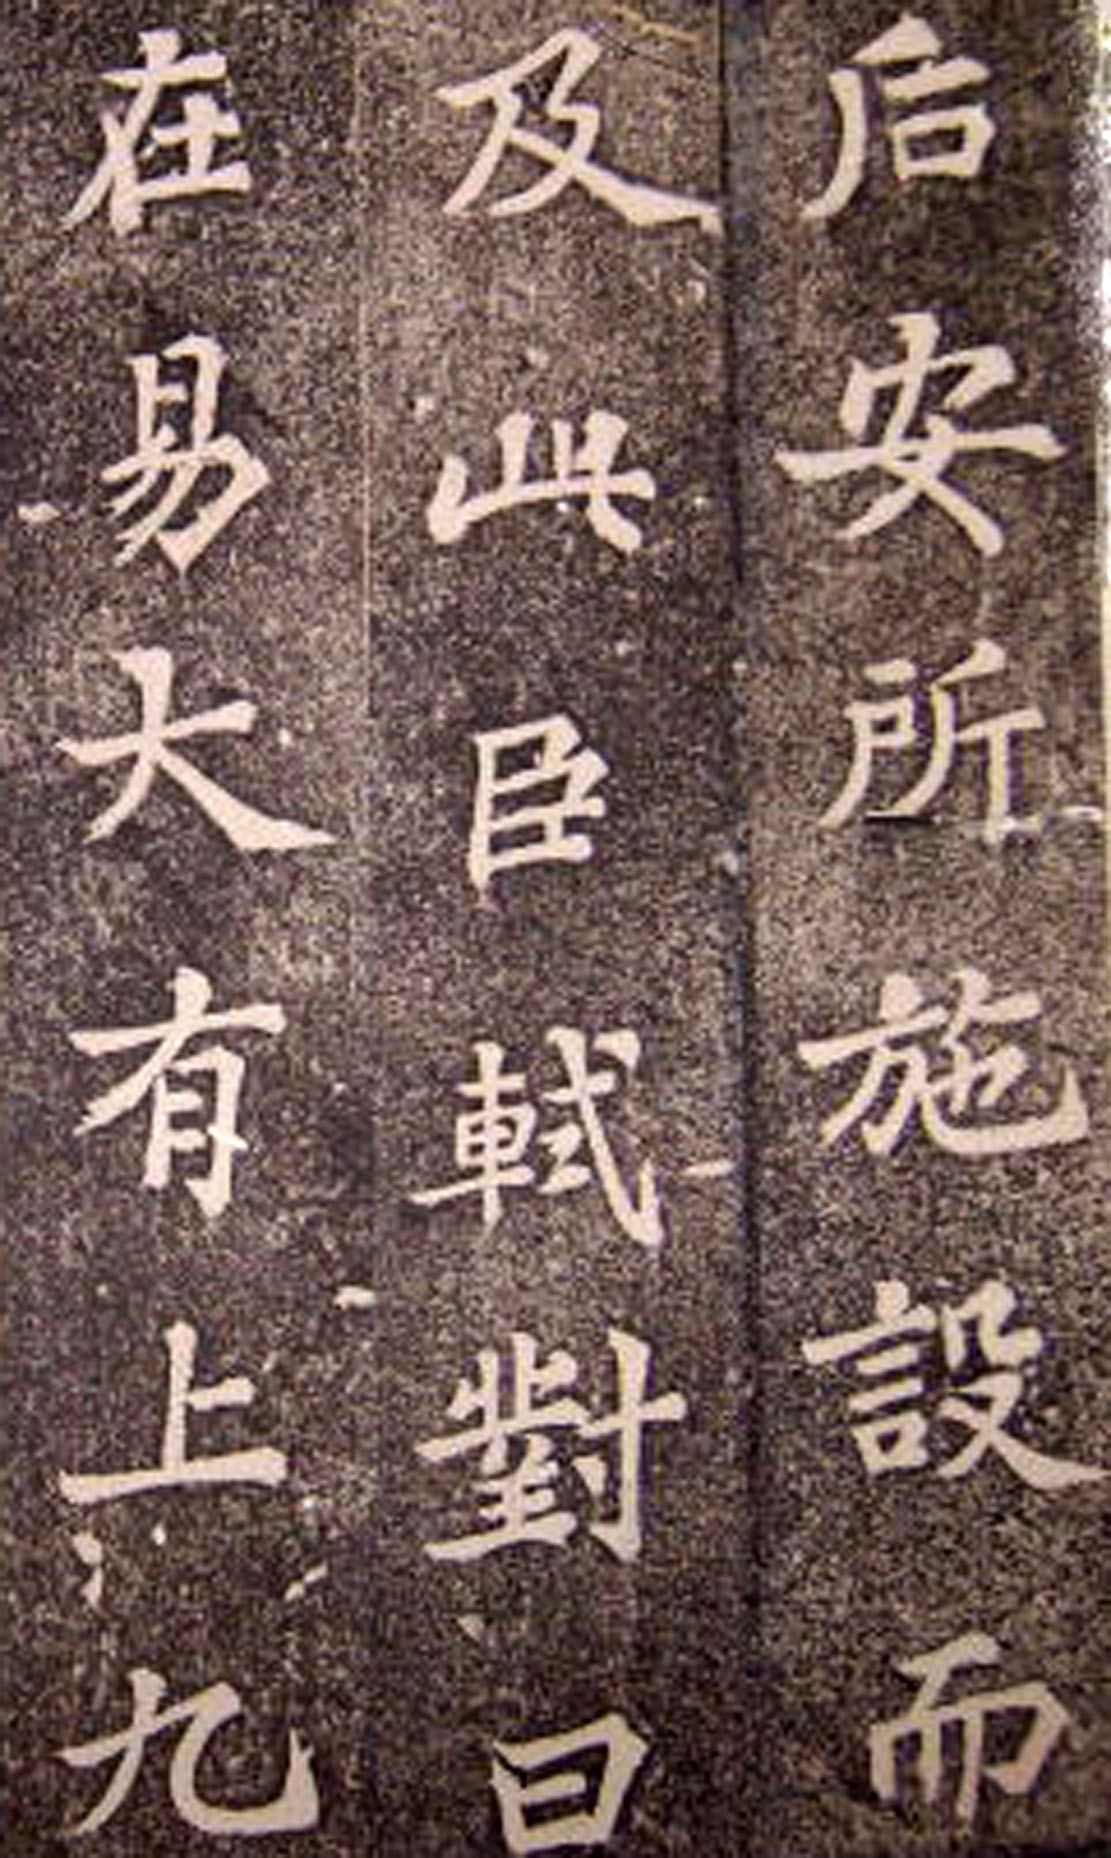 后安所施設而
及此臣軾對曰
在易大有上九